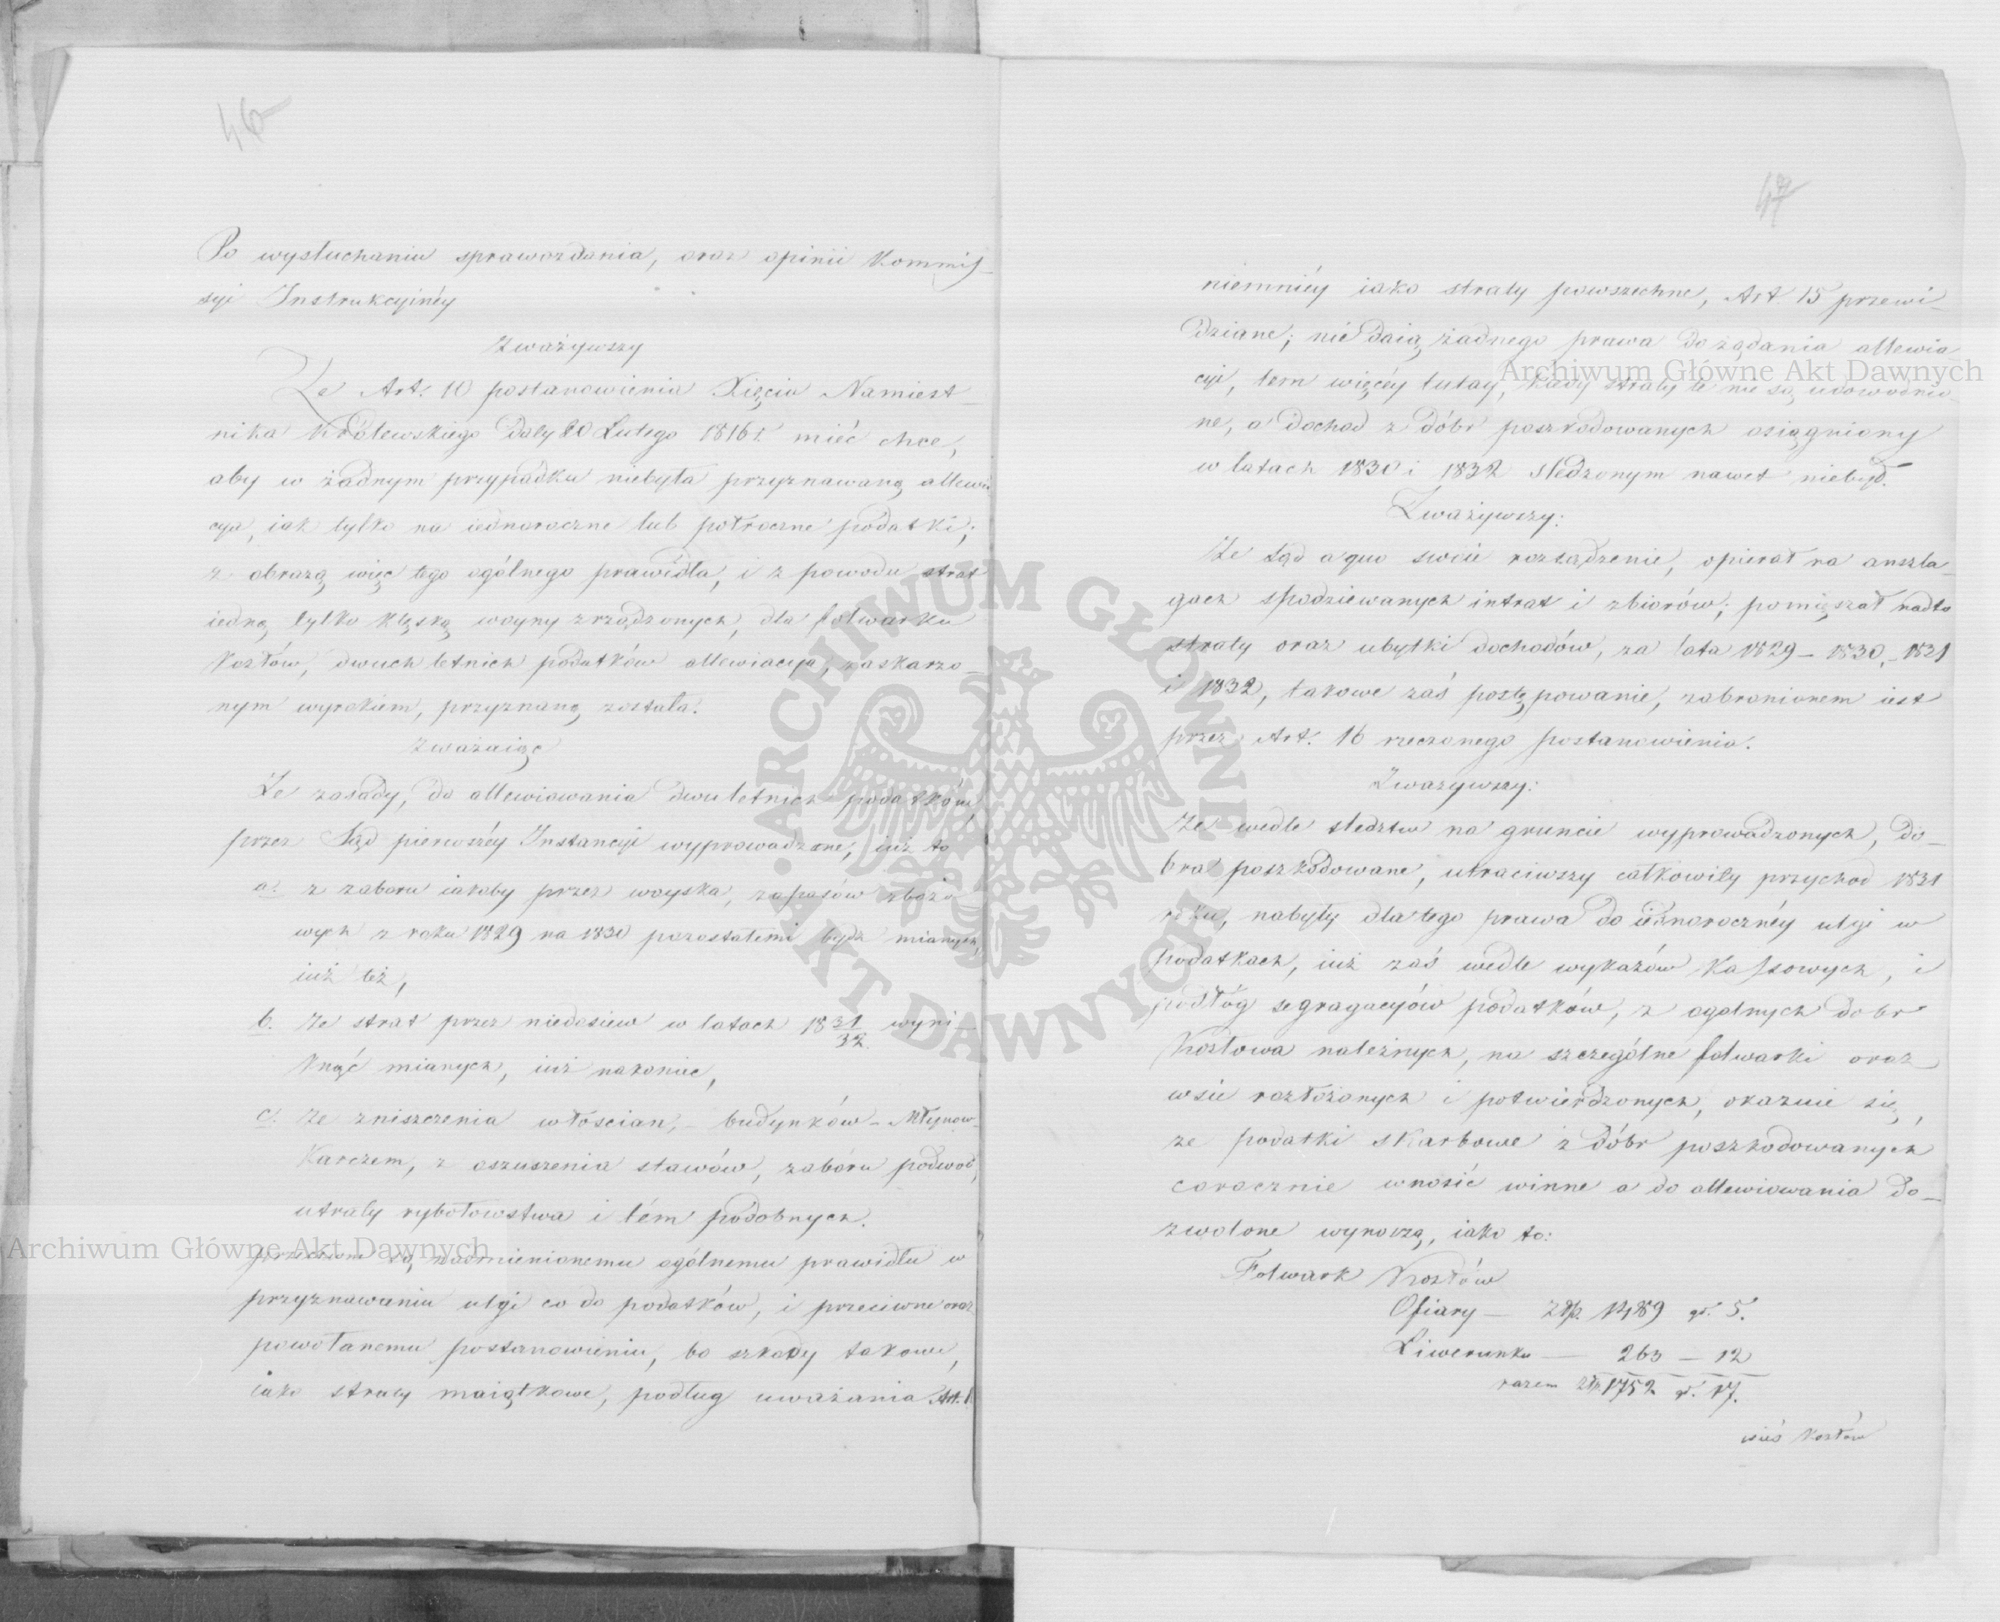 46
Po wysłuchaniu sprawozdania, oraz opinii Kommis-
syi Instrukcyinéy
Zważywszy
Że Art: 10 postanowienia Xięcia Namiest-
nika Królewskiego Daty 20 Lutego 1816 r. mieć chce,
aby w żadnym przypadku niebyła przyznawaną allewia
cya, iak tylko na iednoroczne lub półroczne podatki;
z obrazą więc tego ogólnego prawidła, i z powodu strat
iedną tylko klęską woyny zrządzonych, dla folwarku
Kozłów, dwuch letnich podatków allewiacya, zaskarżo-
nym wyrokiem, przyznaną została.
Zważaiąc
Że zasady, do allewiowania dwuletnich podatków
przez Sąd pierwszéy Instancyi wyprowadzone, iuż to
a. z zaboru iakoby przez woyska, zapasów zbożo
wych z roku 1829 na 1830 pozostałemi bydź mianych,
iuż też,
b. Ze strat przez niedosiew w latach 1831/32. wyni-
knąć mianych, iuż nakoniec,
c. Ze zniszczenia włościan, - budynków - Młynów -
Karczem, z oszuszenia stawów, zaboru podwod,
utraty rybołowstwa i tém podobnych.
przeciwne są nadmienionemu ogólnemu prawidłu w
przyznawaniu ulgi co do podatków, i przeciwne oraz
powołanemu postanowieniu, bo szkody takowe,
iako straty maiątkowe, podług uważania Art. 1.
47
niemniéy iako straty powszechne, Art 15 przewi-
dziane; nie daią żadnego prawa do żądania allewia
cyi, tem więcéy tutay, kiedy straty te nie są udowodnio
ne, a dochod z dóbr poszkodowanych osiągniony
w latach 1830 i 1832 śledzonym nawet niebył.
Zważywszy:
Że Sąd a quo swoie rozsądzenie, opierał na anszla-
gach spodziewanych intrat i zbiorów; pomięszał nadto
straty oraz ubytki dochodów, za lata 1829 - 1830, - 1831
i 1832, takowe zaś postępowanie, zabronionem iest
przez Art. 16 rzeczonego postanowienia.
Zważywszy:
Że wedle śledztw na gruncie wyprowadzonych, do-
bra poszkodowane, utraciwszy całkowity przychod 1831
roku, nabyły dla tego prawa do iednorocznéy ulgi w
podatkach, iuż zaś wedle wykazów Kassowych, i
podłóg segragacyiów podatków, z ogolnych dobr
Kozłowa należnych, na szczególne folwarki oraz
wsie rozłożonych i potwierdzonych, okazuie się,
że podatki skarbowe z dóbr poszkodowanych
corocznie wnosić winne a do allewiowania do-
zwolone wynoszą, iako to:
Folwark Kozłów
Ofiary - Złp. 1489 gr. 5.
Liwerunku - 263 - 12
razem Złp. 1752 gr. 17.
wieś Kozłów
Archiwum Główne Akt Dawnych
Archiwum Główne Akt Dawnych
ARCHIWUM GŁÓWNE AKT DAWNYCH